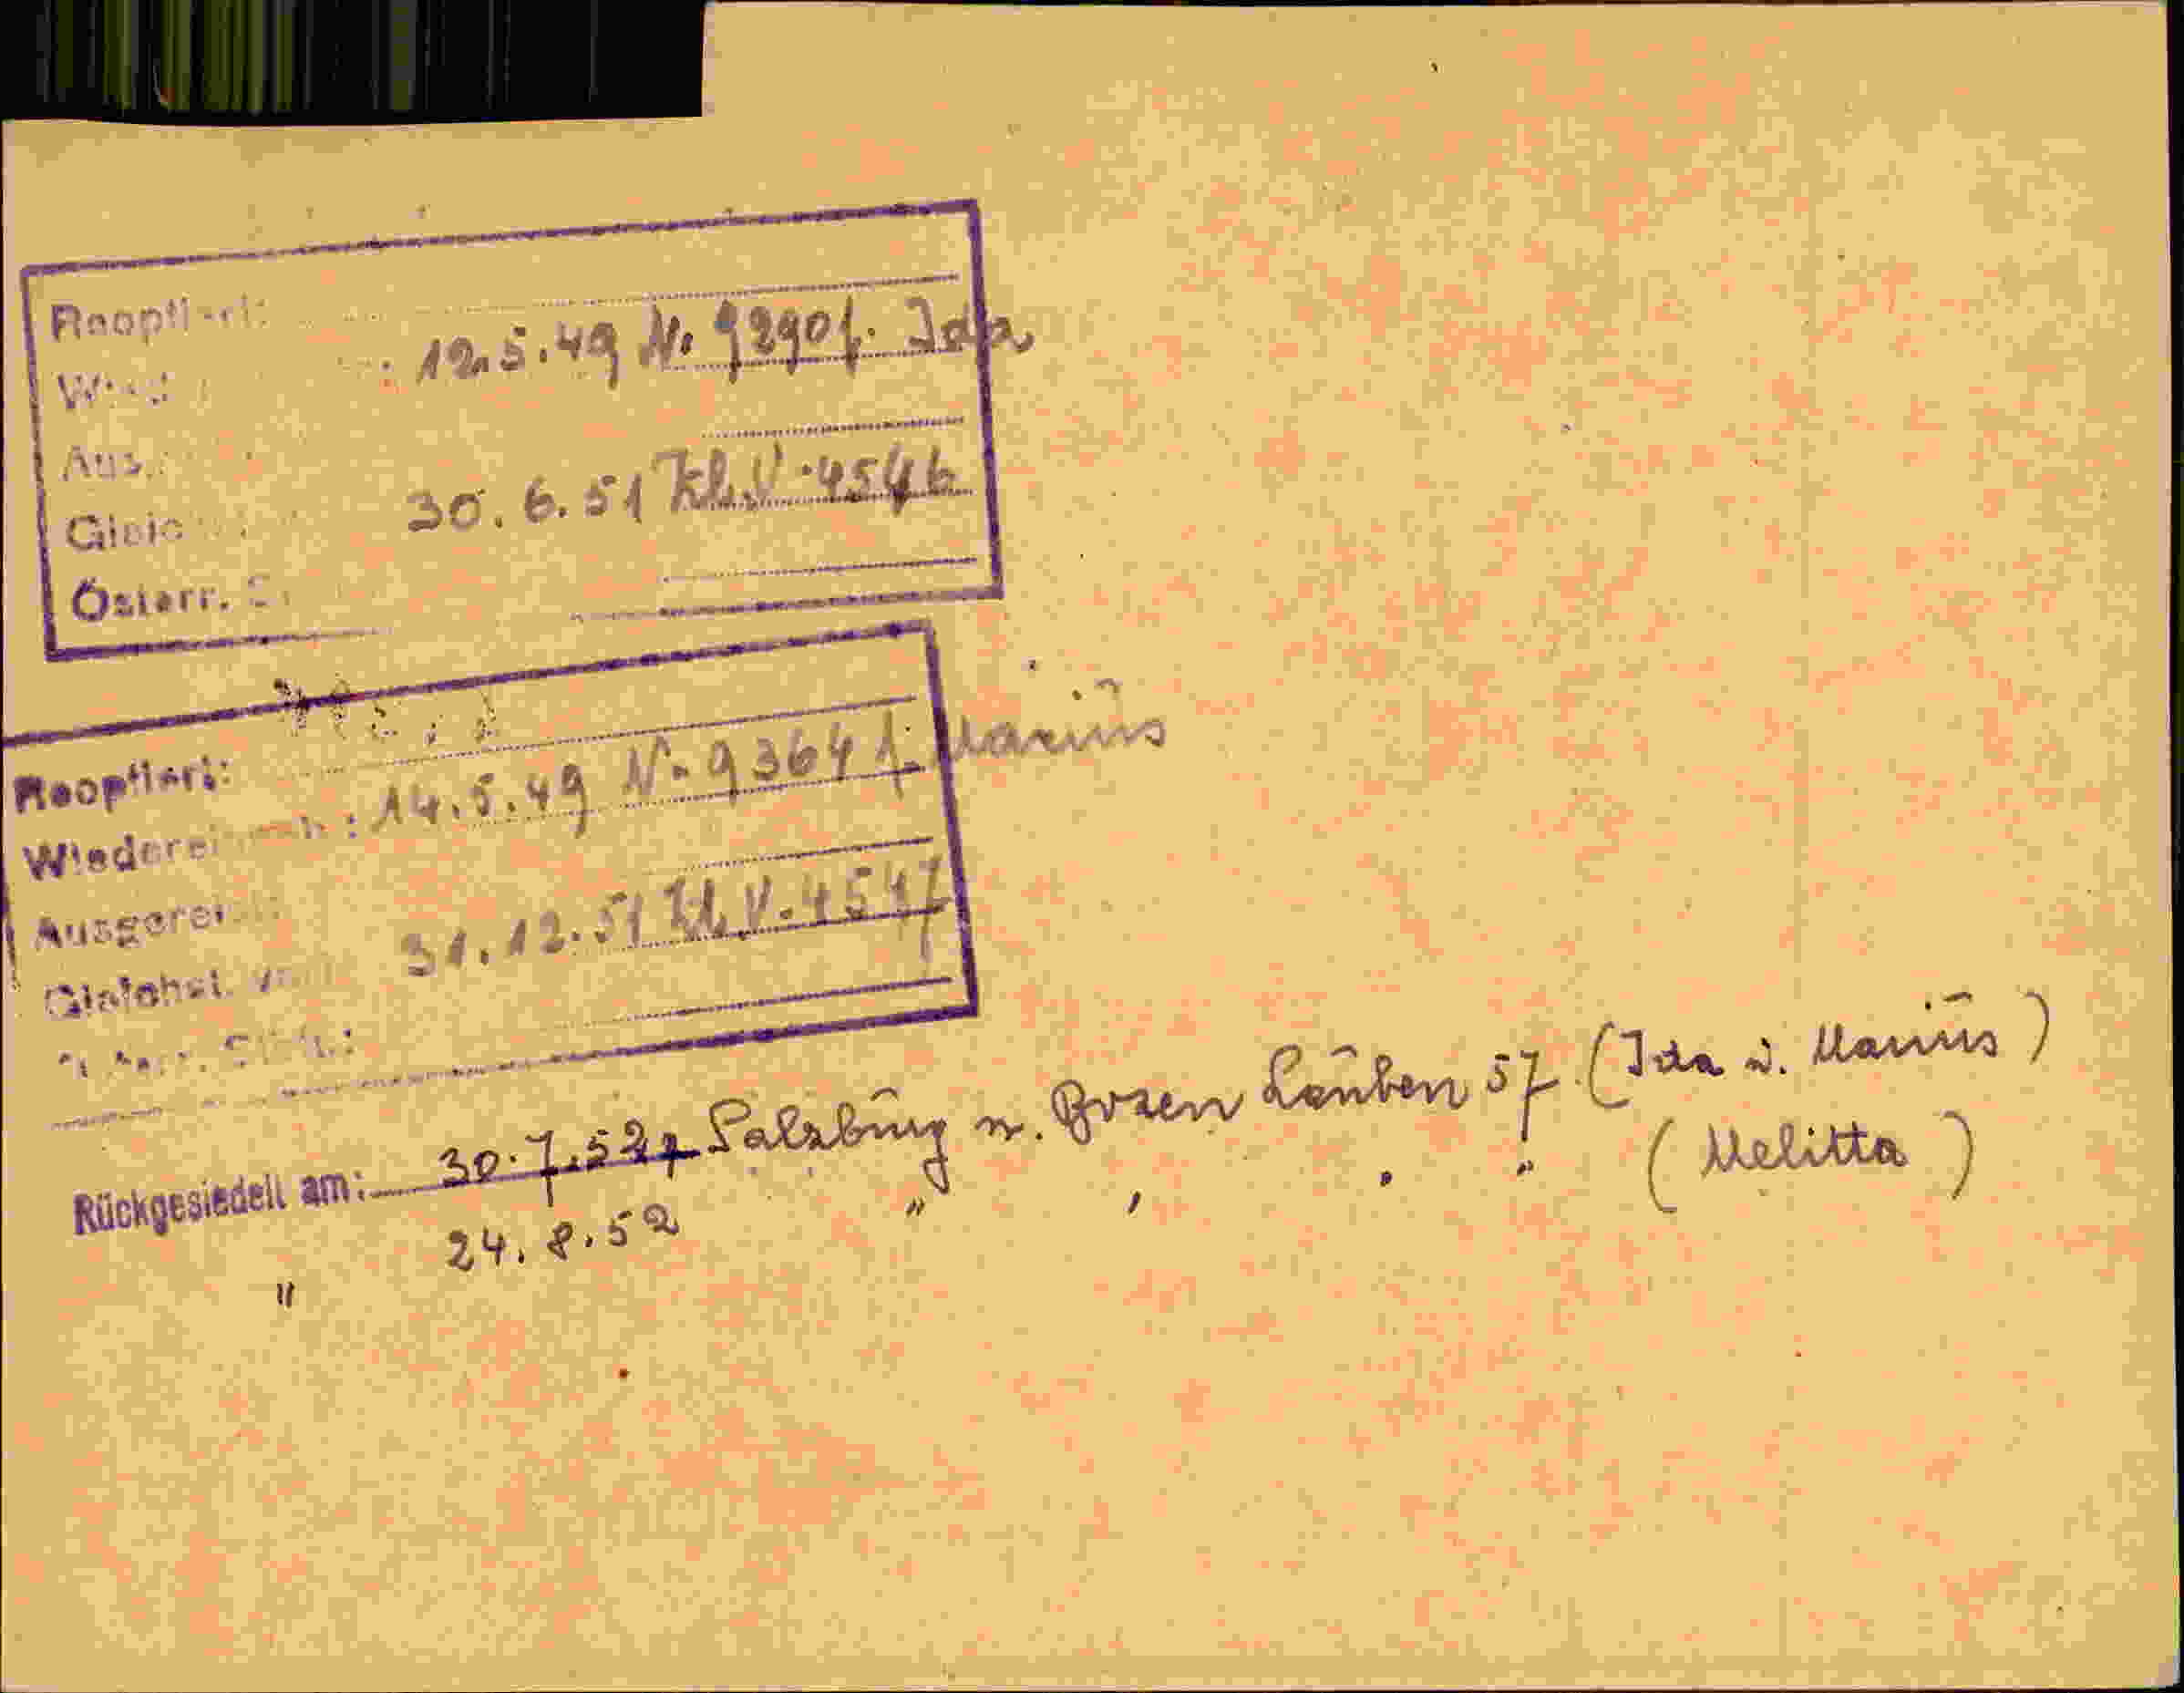 Reoptiert:
12.5.49 N. 9290 f. Ida
Aus
Gleic 30.6.51 Kl.V.4546
Österr.
Reoptiert:
Wiederei : 14.5.49 N. 9364 f. Marius
Ausgerei
Gleichst. 31.12.51 Kl.V.4547
Rückgesiedelt am: 30.7.52 Salzburg n. Bozen Lauben 57 (Ida u. Marius)
" 24.8.52 " " " " (Melitta)